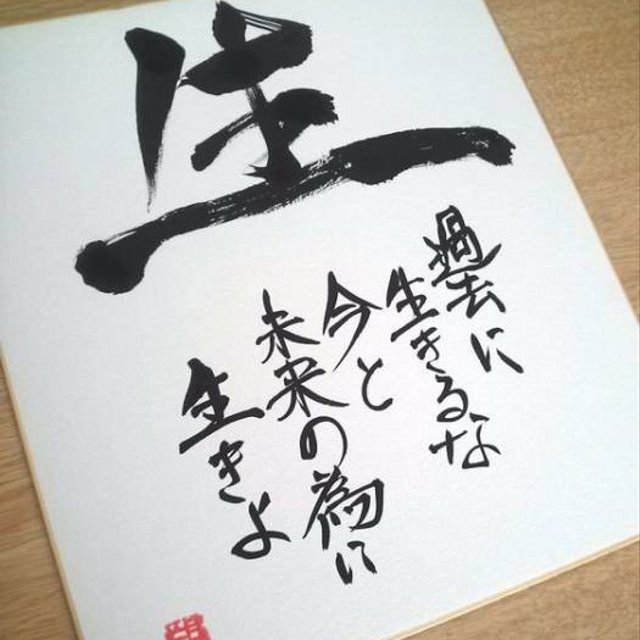 生
過去に
生きるな
今と
未来の為に
生きよ